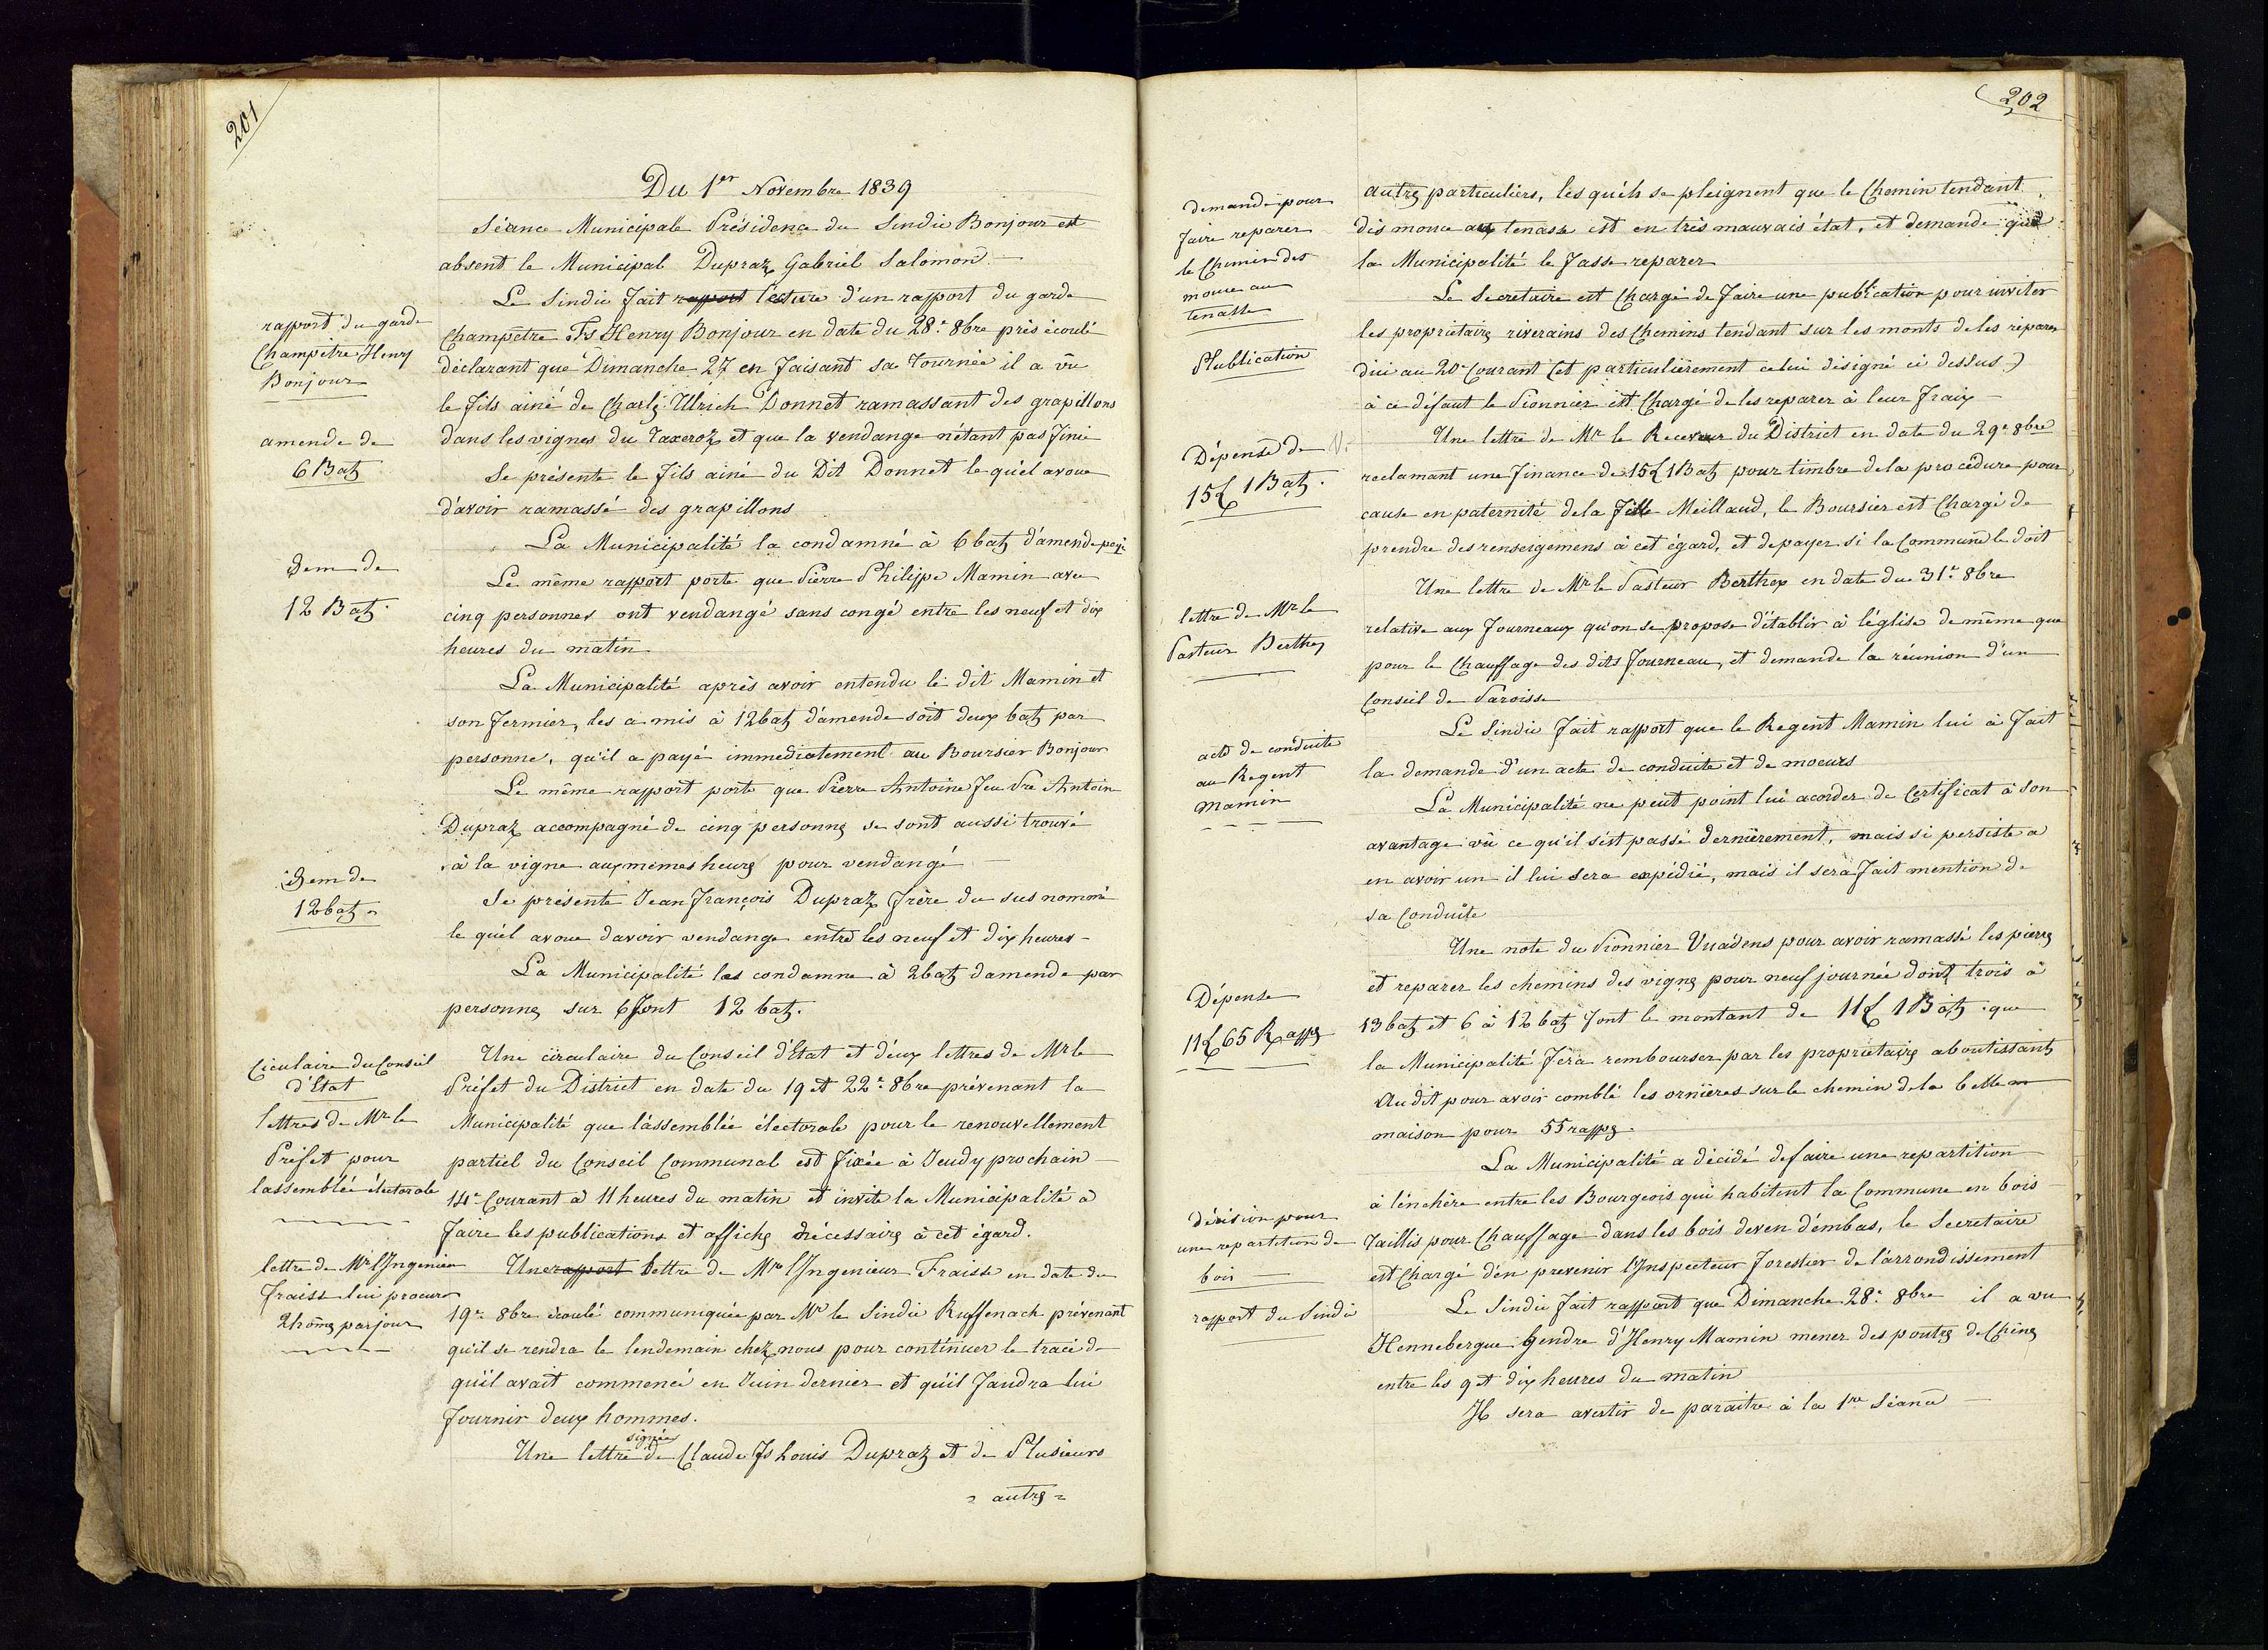 201
Du 1er Novembre 1839
Séance Municipale Présidence du Sindic Bonjour est
absent le Municipal Dupraz Gabriel Salomon
Le Sindic fait rapport lecture d'un rapport du garde
rapport du garde
Champêtre Henry
Bonjour
Champetre Fs Henry Bonjour en date du 28e 8bre près écoulé
déclarant que Dimanche 27 en faisant sa Tournée il a vû
le fils ainé de Charles Ulrich Donnet ramassant des grapillons
dans les vignes du Taxeroz et que la vendange n'étant pas finie
amende de
6 Batz
Se présente le fils ainé du Dit Donnet le quel avoue
d'avoir ramassé des grapillons
La Municipalité la condamné à 6 batz d'amende payé
Idem de
12 Batz.
Le même rapport porte que Pierre Philippe Mamin avec
cinq personnes ont vendangé sans congé entre les neuf et dix
heures du matin
La Municipalité après avoir entendu le dit Mamin et
son fermier, les a mis à 12 batz d'amende soit deux batz par
personne, qu'il a payé immediatement au Boursier Bonjour
Le même rapport porte que Pierre Antoine feu Pre Antoin
Dupraz accompagné de cinq personnes se sont aussi trouvé
à la vigne aux mêmes heures pour vendangé
Idem de
12 batz
Se présente Jean François Dupraz frère du sus nommé
le quel avoue davoir vendange entre les neuf et dix heures
La Municipalité les condamne à 2 batz damende par
personnes sur 6 font 12 batz.
Ciculaire du Conseil
d'Etat
lettres de Mr le
Préfet pour
lassemblée électorale
Une circulaire du Conseil d'Etat et deux lettres de Mr le
Préfet du District en date du 19 et 22e 8bre prévenant la
Municipalité que l'assemblée électorale pour le renouvellement
partiel du Conseil Communal est fixée à Jeudy prochain
14e Courant à 11 heures du matin et invite la Municipalité à
faire les publications et affiches nécessaires à cet égard.
lettre de Mr l'Ingenieur
Fraisse lui procurer
2 homes par jour
Une rapport lettre de Mr l'Ingenieur Fraisse en date du
19e 8bre écoulé communiquée par Mr le Sindic Ruffenach prévenant
qu'il se rendra le lendemain chez nous pour continuer le tracé de
qu'il avait commencé en Juin dernier et qu'il faudra lui
fournir deux hommes.
Une lettre signée de Claude Fs Louis Dupraz et de Plusieurs
= autres =
202
autres particuliers, les quels se pleignent que le Chemin tendant
dès mouce aux tenasse est en très mauvais état, et demande que
la Municipalité le fasse reparer
demande pour
faire reparer
le Chemin des
mouce au
tenasse
Publication
Le Secretaire est Chargé de faire une publication pour inviter
les proprietaires riverains des Chemins tendant sur les monts de les réparer
dici au 20e Courant (et particulièrement celui désigné ci dessus)
à ce défaut le Pionnier est Chargé de les reparer à leur fraix
Dépense de
15 £ 1 Batz.
Une lettre de Mr le Receveur du District en date du 29e 8bre
reclamant une finance de 15£ 1 Batz pour timbre de la procédure pour
cause en paternité de la fille Meillaud, le Boursier est Chargé de
prendre des renseigemens à cet égard, et de payer si la Commune le doit
lettre de Mr le
Pasteur Berthex
Une lettre de Mr le Pasteur Berthex en date du 31e 8bre
relative aux fourneaux qu'on se propose d'établir à léglise de même que
pour le Chauffage des dits fourneau, et demande la réunion d'un
Conseil de Paroisse
acte de conduite
au Regent
Mamin
Le Sindic fait rapport que le Regent Mamin lui à fait
la demande d'un acte de conduite et de moeurs
La Municipalité ne peut point lui acorder de Certificat à son
avantage vû ce qu'il s'est passé dernièrement, mais si persiste a
en avoir un il lui sera expédié, mais il sera fait mention de
sa Conduite
Dépense
11£ 65 Rapps
Une note du Pionnier Vuadens pour avoir ramassé les pierres
et reparer les chemins des vignes pour neuf journée dont trois à
13 batz et 6 à 12 batz font le montant de 11£ 1 Batz. que
la Municipalité fera rembourser par les proprietaires aboutissants
Au dit pour avoir comblé les ornières sur le chemin de la belle
maison pour 55 rapps.
La Municipalité a décidé de faire une repartition
à lénchère entre les Bourgeois qui habitent la Commune en bois
décision pour
une repartition de
bois
Taillis pour Chauffage dans les bois deven d'embas, le Secretaire
est Chargé d'en prevenir l'Inspecteur forestier de l'arrondissement
rapport du Sindic
Le Sindic fait rapport que Dimanche 28e 8bre il a vu
Hennebergue Gendre d'Henry Mamin mener des poutres de Chêne
entre les 9 et dix heures du matin
Il sera avertir de paraitre à la 1re Séance